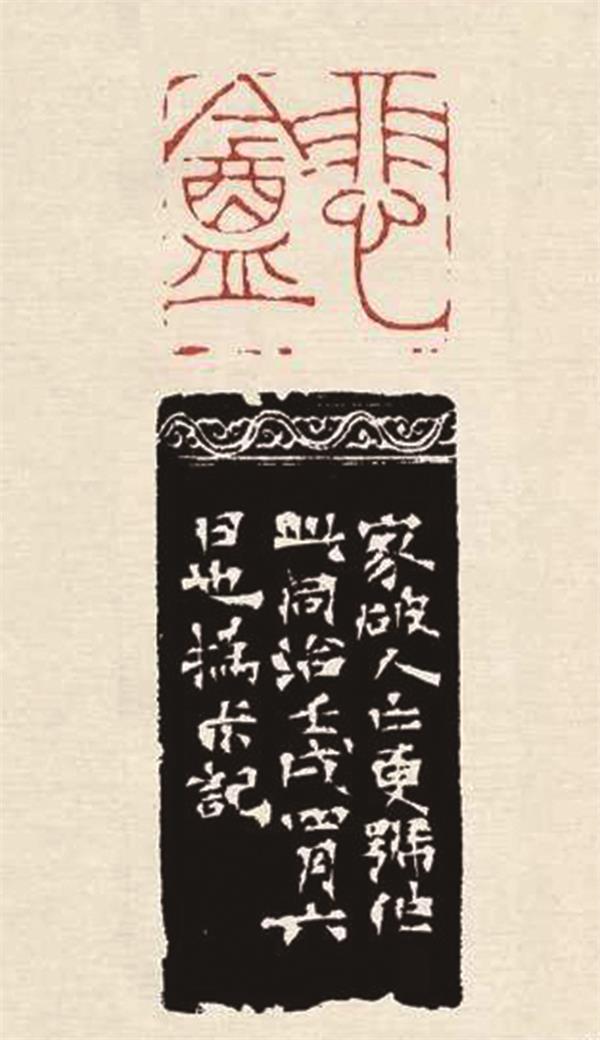 悲盦
家破人亡更號作
此同治壬戌四月六
日也撝尗記